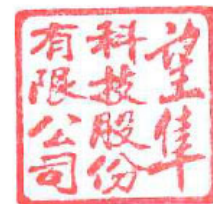 望隼
科技股份
有限公司